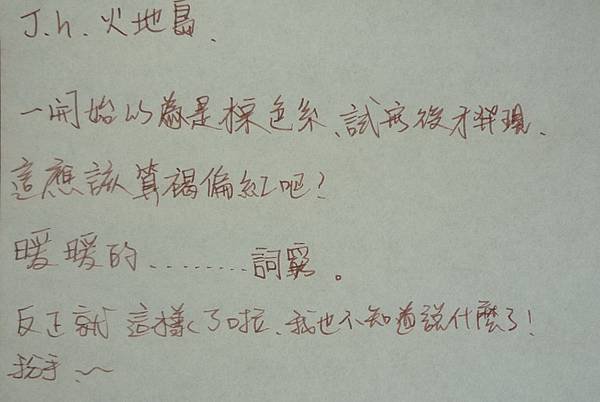 J.h. 火地島.
一開始以為是棕色系、試寫後才發現、
這應該算褐偏紅吧?
暖暖的………詞窮。
反正就這樣ㄑ了啦、我也不知道說什麼了!
扮手、~~